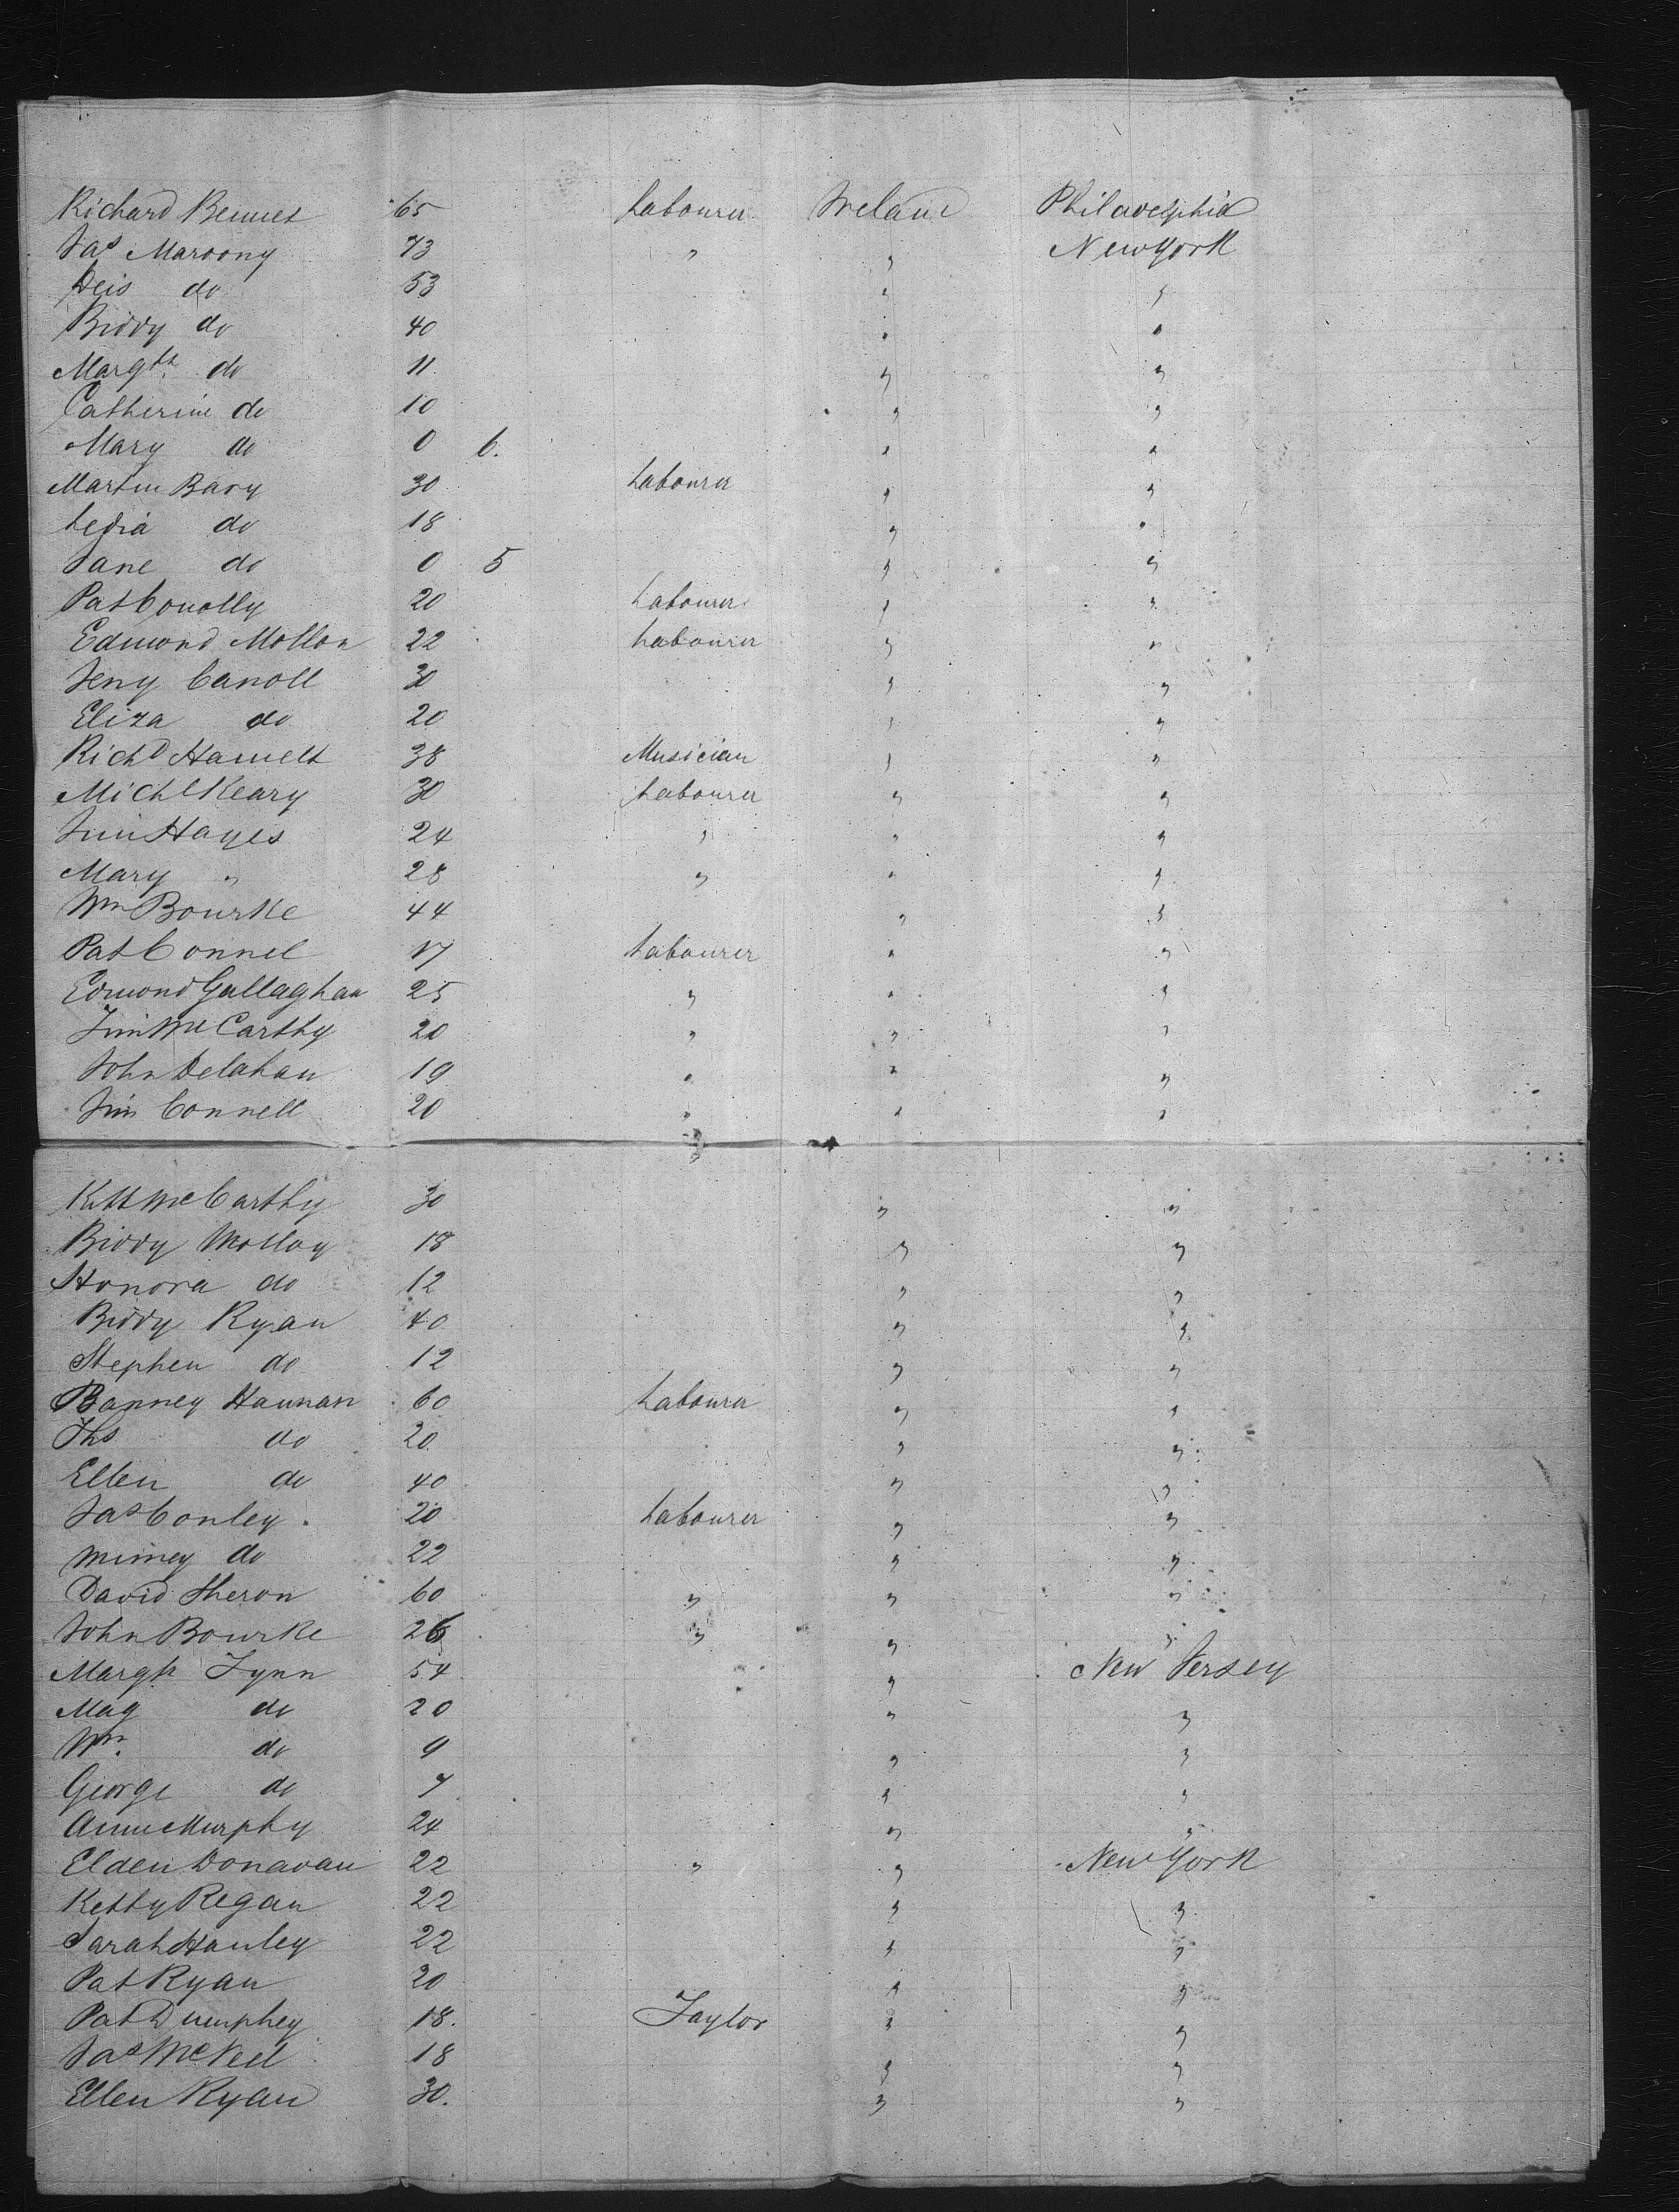 Richard Bennet 65 Labourer Ireland Philadelphia
Jas Maroony 73 " " New York
do 53 " "
Biddy do 40 " "
Margt. do 11 " "
Catherine do 10 " "
Mary do 0 6. " "
Martin Bary 30 Labourer " "
Ledia do 18 " "
Jane do 0 5 " "
Pat Conolly 20 Labourer " "
Edmond Mollon 22 Labourer " "
Jeny Caroll 30 " "
Eliza do 20 " "
Richd Hamelt 38 Musician " "
Michl Keary 30 Labourer " "
Jim Hayes 24 " " "
Mary " 28 " " "
Wm Bourke 44 " "
Pat Connel 17 Labourer " "
Edmond Gallaghan 25 " " "
Jim McCarthy 20 " " "
John Delahan 19 " " "
Jim Connell 20 " " "
Kitt McCarthy 30 " "
Biddy Molloy 18 " "
Honora do 12 " "
Biddy Ryan 40 " "
Stephen do 12 " "
Banney Hannan 60 Labourer " "
Ths do 20 " "
Ellen do 40 " "
Jas Conley. 20 Labourer " "
Mimey do 22 " "
David Sheron 60 " " "
John Bourke 26 " " "
Margt. Lynn 54 " New Jersey
Mag do 20 " "
Wm. do 9 " "
George do 7 " "
Ann Murphy 24 " "
Elden Donavan 22 " " New York
Ketty Regan 22 " "
Sarah Hanley 22 " "
Pat Ryan 20 " "
Pat Dumphey 18. Taylor " "
Jas McNeil 18 " "
Ellen Ryan 30. " "